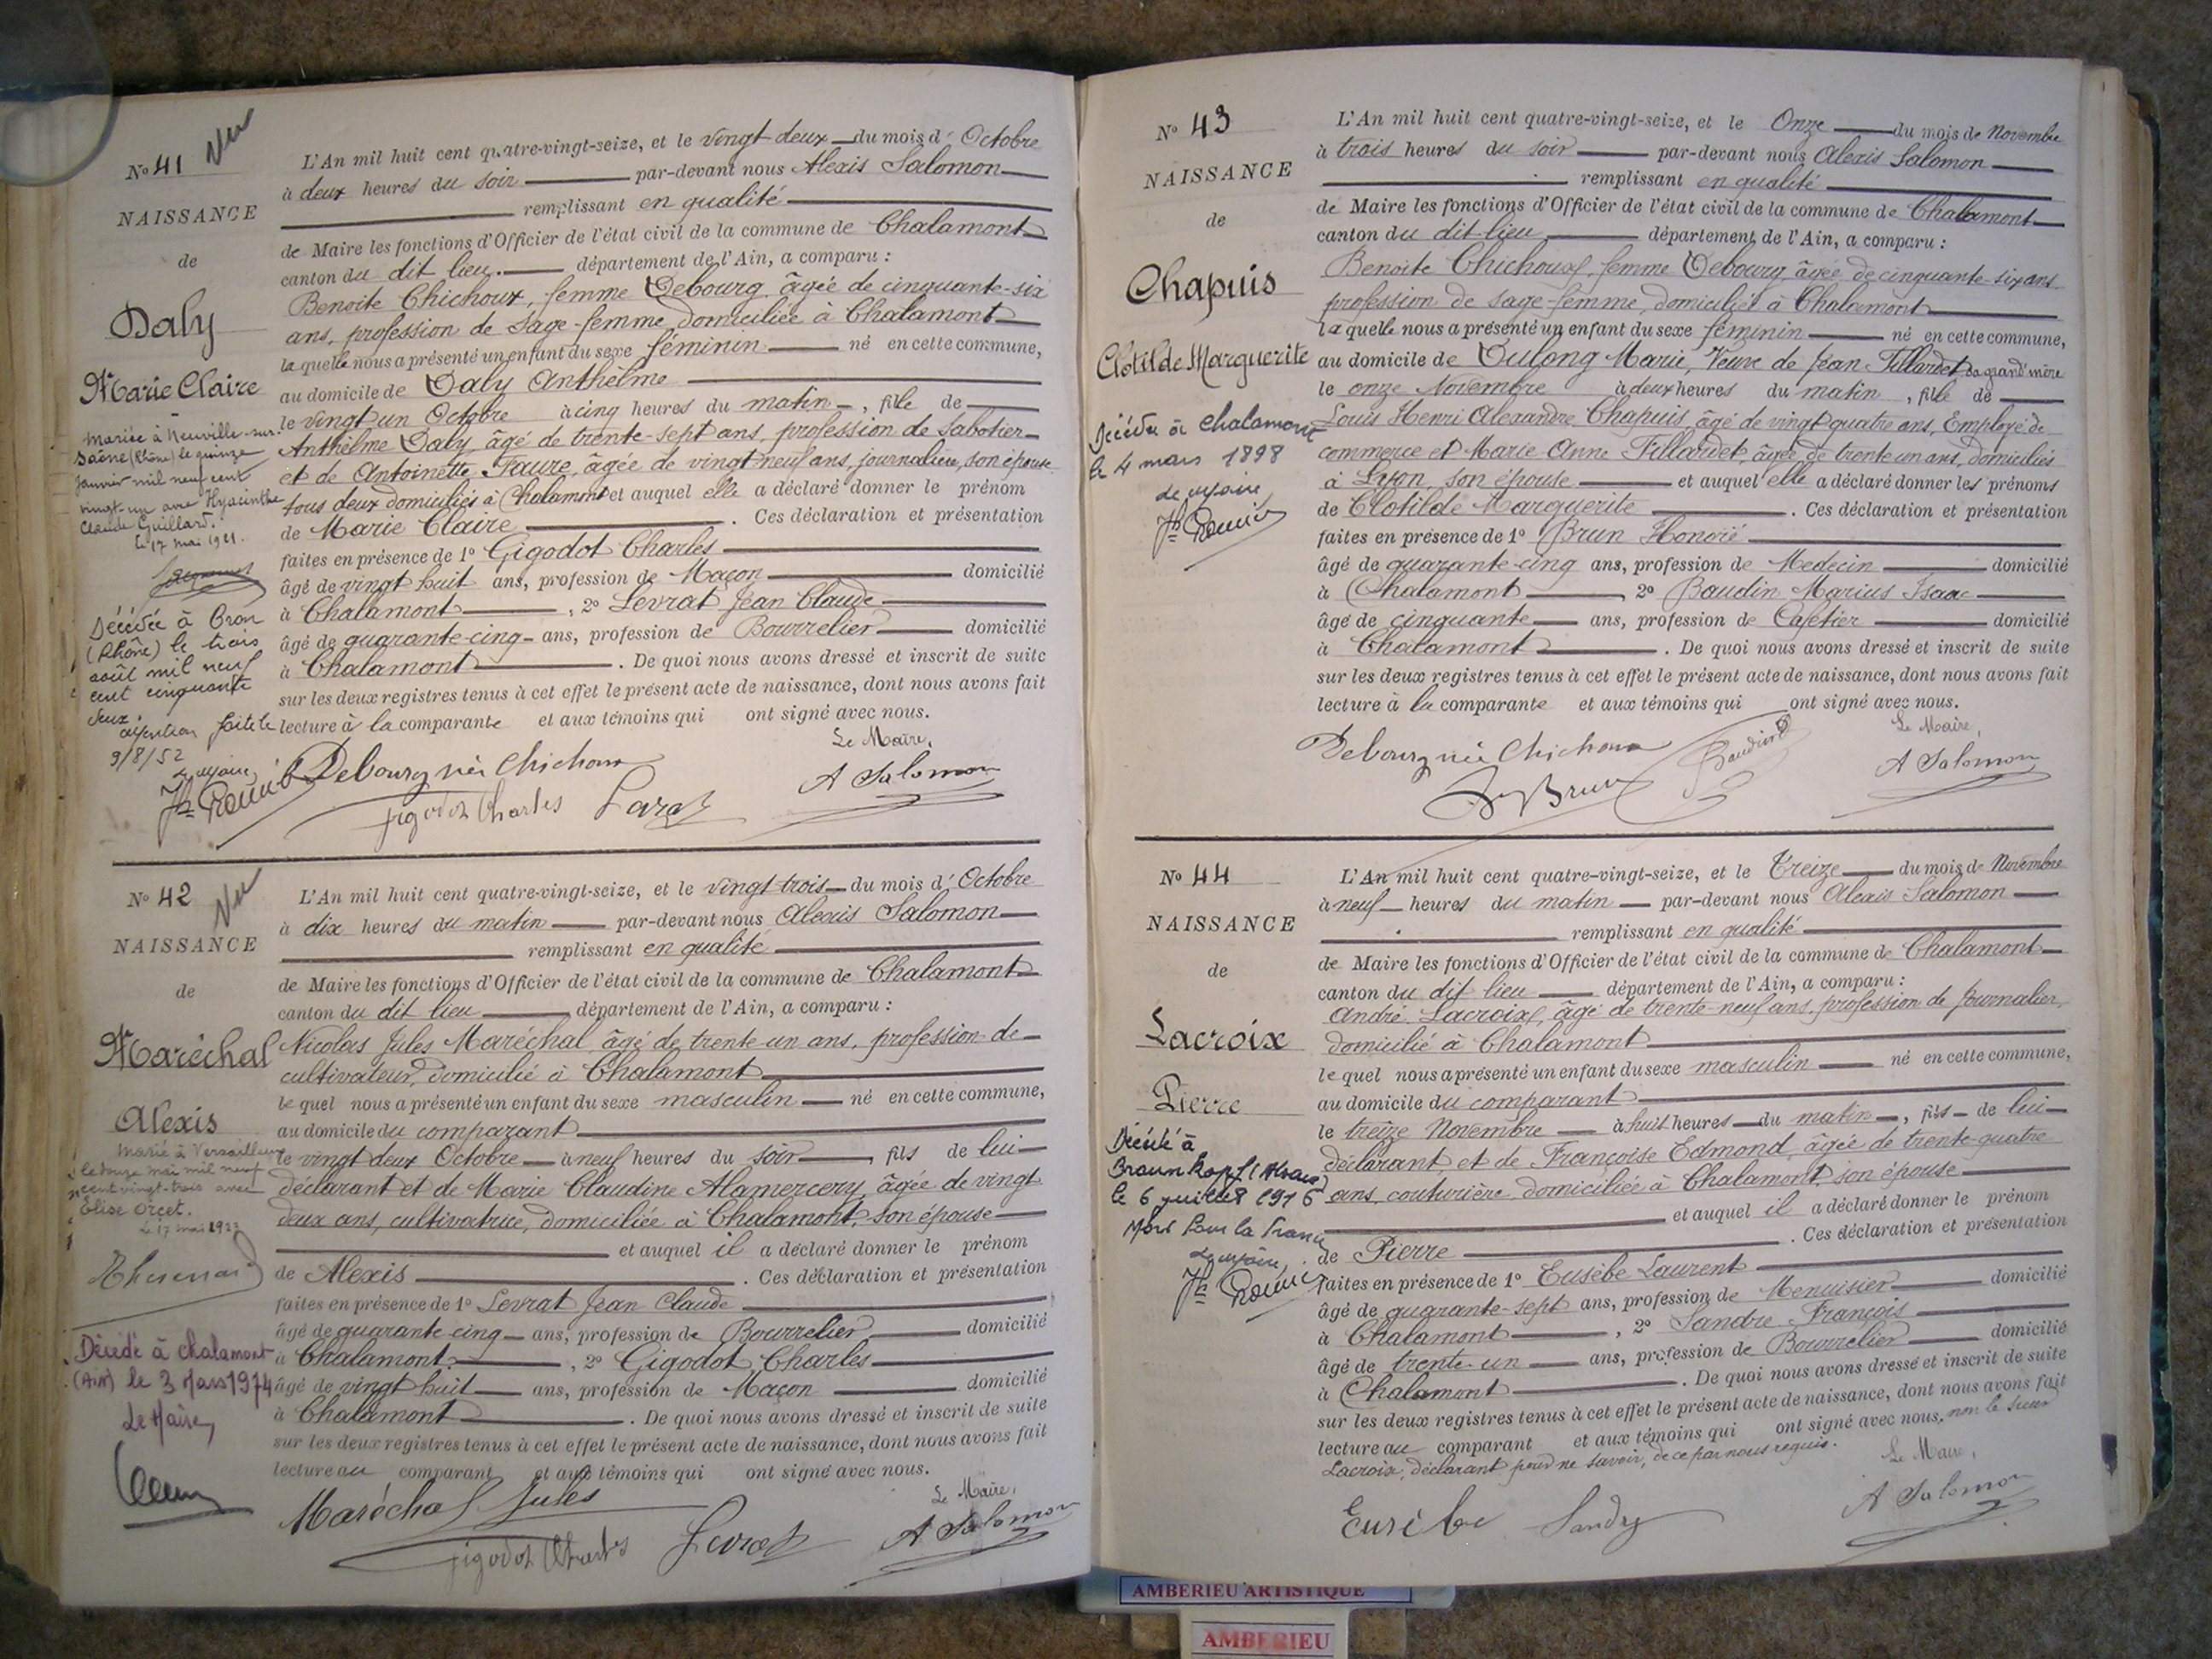 No 41
Vu
NAISSANCE
de
Daly
Marie Claire
Mariée à Neuville-sur-
Saône (Rhône) le quinze
Janvier mil neuf cent
vingt-un avec Hyacinthe
Claude Guillard.
Le 17 mai 1921.
Décédée à Bron
(Rhône) le trois
août mil neuf
cent cinquante
deux.
mention faite le
9/8/52
Le Maire,
L'An mil huit cent quatre-vingt-seize, et le vingt deux du mois d'Octobre
à deux heures du soir par-devant nous Alexis Salomon
remplissant en qualité
de Maire les fonctions d'Officier de l'état civil de la commune de Chalamont
canton du dit lieu. département de l'Ain, a comparu :
Benoite Chichoux, femme Debourg âgée de cinquante-six
ans, profession de sage-femme domiciliée à Chalamont
laquelle nous a présenté un enfant du sexe féminin né en cette commune,
au domicile de Daly Anthelme
le vingt un Octobre à cinq heures du matin, fille de
Anthelme Daly âgé de trente-sept ans, profession de Sabotier
et de Antoinette Faure, âgée de vingt neuf ans, journalière, son épouse
tous deux domiciliés à Chalamont et auquel elle a déclaré donner le prénom
de Marie Claire. Ces déclaration et présentation
faites en présence de 1º Gigodot Charles
âgé de vingt huit ans, profession de Maçon domicilié
à Chalamont, 2º Levrat Jean Claude
âgé de quarante-cinq ans, profession de Bourrelier domicilié
à Chalamont. De quoi nous avons dressé et inscrit de suite
sur les deux registres tenus à cet effet le présent acte de naissance, dont nous avons fait
lecture à la comparante et aux témoins qui ont signé avec nous.
Le Maire,
Debourg née Chichoux
A Salomon
Gigodot Charles Levrat
No 42
Vu
NAISSANCE
de
Maréchal
Alexis
Marié à Versailleux
le douze mai mil neuf
cent vingt-trois avec
Elise Orcet.
Le 17 mai 1923
Décédé à Chalamont
(Ain) le 3 Mars 1974
Le Maire,
L'An mil huit cent quatre-vingt-seize, et le vingt trois du mois d'Octobre
à dix heures du matin par-devant nous Alexis Salomon
remplissant en qualité
de Maire les fonctions d'Officier de l'état civil de la commune de Chalamont
canton du dit lieu département de l'Ain, a comparu :
Nicolas Jules Maréchal âgé de trente-un ans, profession de
cultivateur, domicilié à Chalamont
lequel nous a présenté un enfant du sexe masculin né en cette commune,
au domicile du comparant
le vingt deux Octobre à neuf heures du soir, fils de lui
déclarant et de Marie Claudine Alamercery âgée de vingt
deux ans, cultivatrice, domiciliée à Chalamont, son épouse
et auquel il a déclaré donner le prénom
de Alexis. Ces déclaration et présentation
faites en présence de 1º Levrat Jean Claude
âgé de quarante cinq ans, profession de Bourrelier domicilié
à Chalamont, 2º Gigodot Charles
âgé de vingt huit ans, profession de Maçon domicilié
à Chalamont. De quoi nous avons dressé et inscrit de suite
sur les deux registres tenus à cet effet le présent acte de naissance, dont nous avons fait
lecture au comparant et aux témoins qui ont signé avec nous.
Le Maire,
Maréchal Jules
A Salomon
Gigodot Charles Levrat
No 43
NAISSANCE
de
Chapuis
Clotilde Marguerite
Décédée à Chalamont
le 4 mars 1898
Le Maire
L'An mil huit cent quatre-vingt-seize, et le Onze du mois de Novembre
à trois heures du soir par-devant nous Alexis Salomon
remplissant en qualité
de Maire les fonctions d'Officier de l'état civil de la commune de Chalamont
canton du dit lieu département de l'Ain, a comparu :
Benoite Chichoux, femme Debourg âgée de cinquante-six ans
profession de sage-femme, domiciliée à Chalamont
laquelle nous a présenté un enfant du sexe féminin né en cette commune,
au domicile de Dulong Marie, Veuve de Jean Tillardet sa grand'mère
le onze Novembre à deux heures du matin, fille de
Louis Henri Alexandre Chapuis, âgé de vingt quatre ans, Employé de
commerce et Marie Anne Tillardet, âgée de trente un ans, domiciliés
à Lyon, son épouse et auquel elle a déclaré donner les prénoms
de Clotilde Marguerite. Ces déclaration et présentation
faites en présence de 1º Brun Honoré
âgé de quarante-cinq ans, profession de Medecin domicilié
à Chalamont, 2º Baudin Marius Isaac
âgé de cinquante ans, profession de Cafetier domicilié
à Chalamont. De quoi nous avons dressé et inscrit de suite
sur les deux registres tenus à cet effet le présent acte de naissance, dont nous avons fait
lecture à la comparante et aux témoins qui ont signé avec nous.
Le Maire,
Debourg née Chichoux Baudin
A Salomon
Brun
No 44
NAISSANCE
de
Lacroix
Pierre
Décédé à
Braunkopf (Alsace)
le 6 juillet 1916
Mort Pour la France
Le Maire,
L'An mil huit cent quatre-vingt-seize, et le Treize du mois de Novembre
à neuf heures du matin par-devant nous Alexis Salomon
remplissant en qualité
de Maire les fonctions d'Officier de l'état civil de la commune de Chalamont
canton du dit lieu département de l'Ain, a comparu :
André Lacroix, âgé de trente-neuf ans, profession de Journalier,
domicilié à Chalamont
lequel nous a présenté un enfant du sexe masculin né en cette commune,
au domicile du comparant
le treize Novembre à huit heures du matin, fils de lui
déclarant et de Françoise Edmond, âgée de trente-quatre
ans, couturière domiciliée à Chalamont, son épouse
et auquel il a déclaré donner le prénom
de Pierre. Ces déclaration et présentation
faites en présence de 1º Eusèbe Laurent
âgé de quarante-sept ans, profession de Menuisier domicilié
à Chalamont, 2º Sandre François
âgé de trente-un ans, profession de Bourrelier domicilié
à Chalamont. De quoi nous avons dressé et inscrit de suite
sur les deux registres tenus à cet effet le présent acte de naissance, dont nous avons fait
lecture au comparant et aux témoins qui ont signé avec nous, non le sieur
Lacroix, déclarant pour ne savoir, de ce par nous requis.
Le Maire,
A Salomon
Eusèbe
AMBERIEU ARTISTIQUE
AMBERIEU